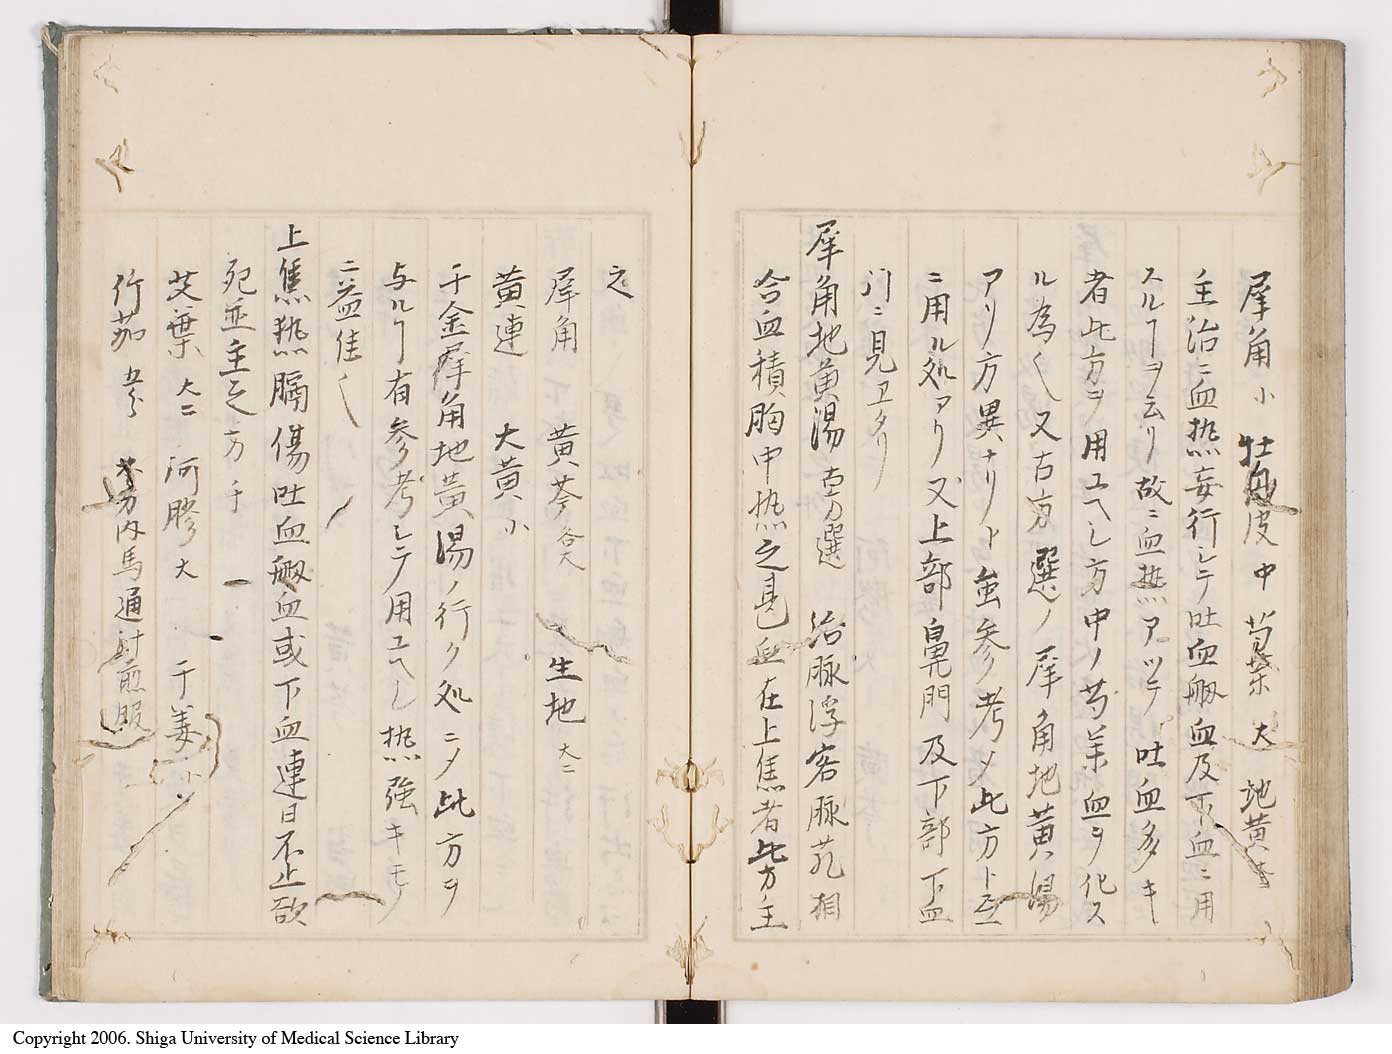 犀角 小 牡丹皮 中 芍薬 大 地黄
主治ニ血熱妄行シテ吐血衂血及下血ニ用
スルヿヲ云リ故ニ血熱アツテ吐血多キ
者此方ヲ用ユヘシ方中ノ芍薬血ヲ化ス
ル為く又古方選ノ犀角地黄湯
アリ方異ナリト虽参考〆此方ト互
ニ用ル処アリ又上部鼻門及下部下血
門ニ見ヱタリ
犀角地黄湯 古方選 治脉浮客脉芤相
合血積胸中热之甚血在上焦者此方主
之
犀角 黄芩 各大 生地 大二
黄連 大黄 小
千金犀角地黄湯ノ行ク処ニ〆此方ヲ
与ルヿ有参考シテ用ユヘし热強キモノ
ニ益佳く
上焦热膈傷吐血衂血或下血連日不止欲
死並主之方 千
艾葉 大二 阿膠 大 干姜 小
竹茹 五分 右方内馬通汁煎服
Copyright 2006. Shiga University of Medical Science Library